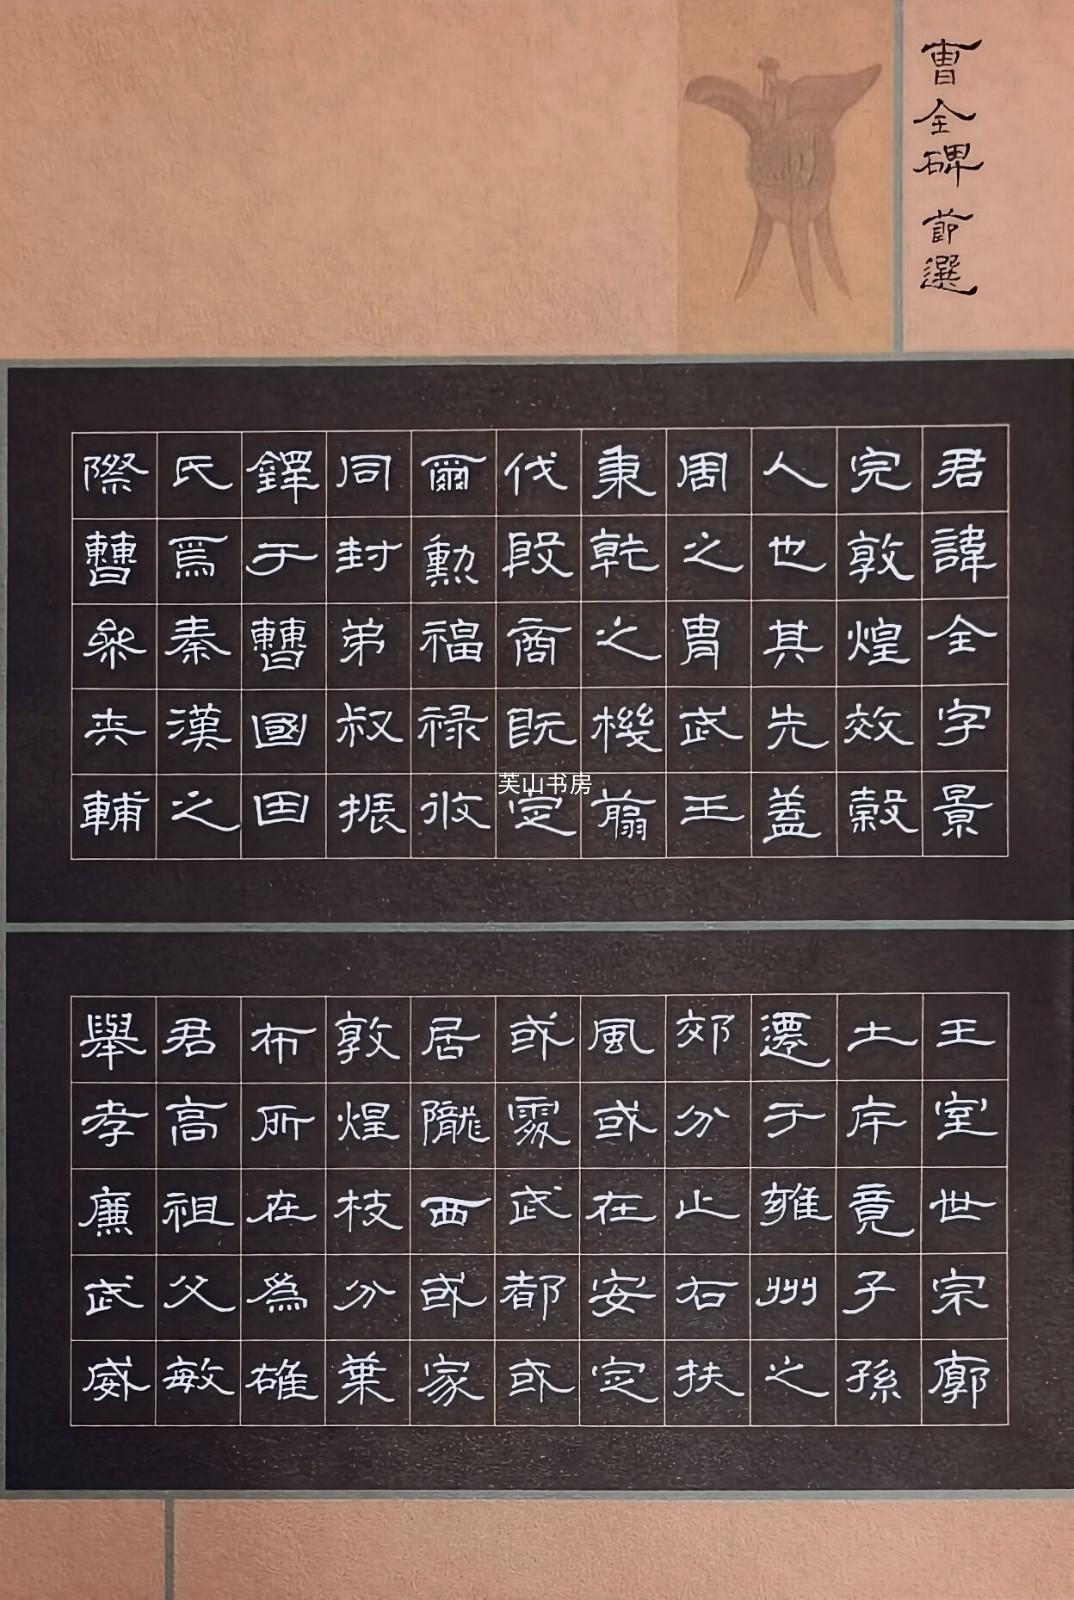 曹全碑 節選
君諱全字景
完敦煌效穀
人也其先蓋
周之胄武王
秉乾之機翦
伐殷商既定
爾勳福祿攸
同封弟叔振
鐸于曹國因
氏焉秦漢之
際曹參夾輔
王室世宗廓
土斥竟子孫
遷于雍州之
郊分止右扶
風或在安定
或處武都或
居隴西或家
敦煌枝分葉
布所在為雄
君高祖父敏
舉孝廉武威
芙山书房